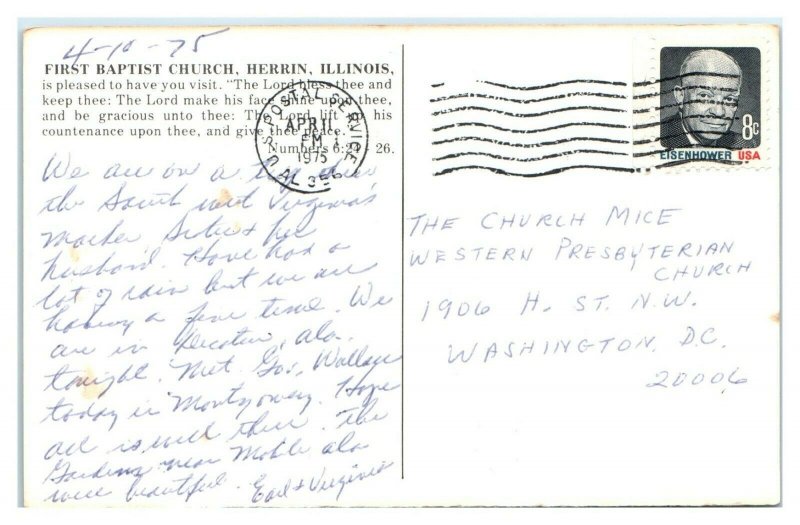 4-10-75
FIRST BAPTIST CHURCH, HERRIN, ILLINOIS,
is pleased to have you visit. "The Lord bless thee and
keep thee: The Lord make his face shine upon thee,
and be gracious unto thee: The Lord lift his
countenance upon thee, and give thee peace."
Numbers 6:24 26.
U.S. POSTAL SERVICE
AL 356
APRIL
PM
1975
8c
EISENHOWER USA
We are on a trip thru
the South with Virginia's
Mother, Sister & her
husband. Have had a
lot of rain but we are
having a fine time. We
are in Decatur, Ala.
tonight. Met Gov. Wallace
today in Montgomery. Hope
all is well there. The
Gardens near Mobile Ala
were beautiful. Earl & Virginia
THE CHURCH MICE
WESTERN PRESBYTERIAN
CHURCH
1906 H. ST. N.W.
WASHINGTON, D.C.
20006